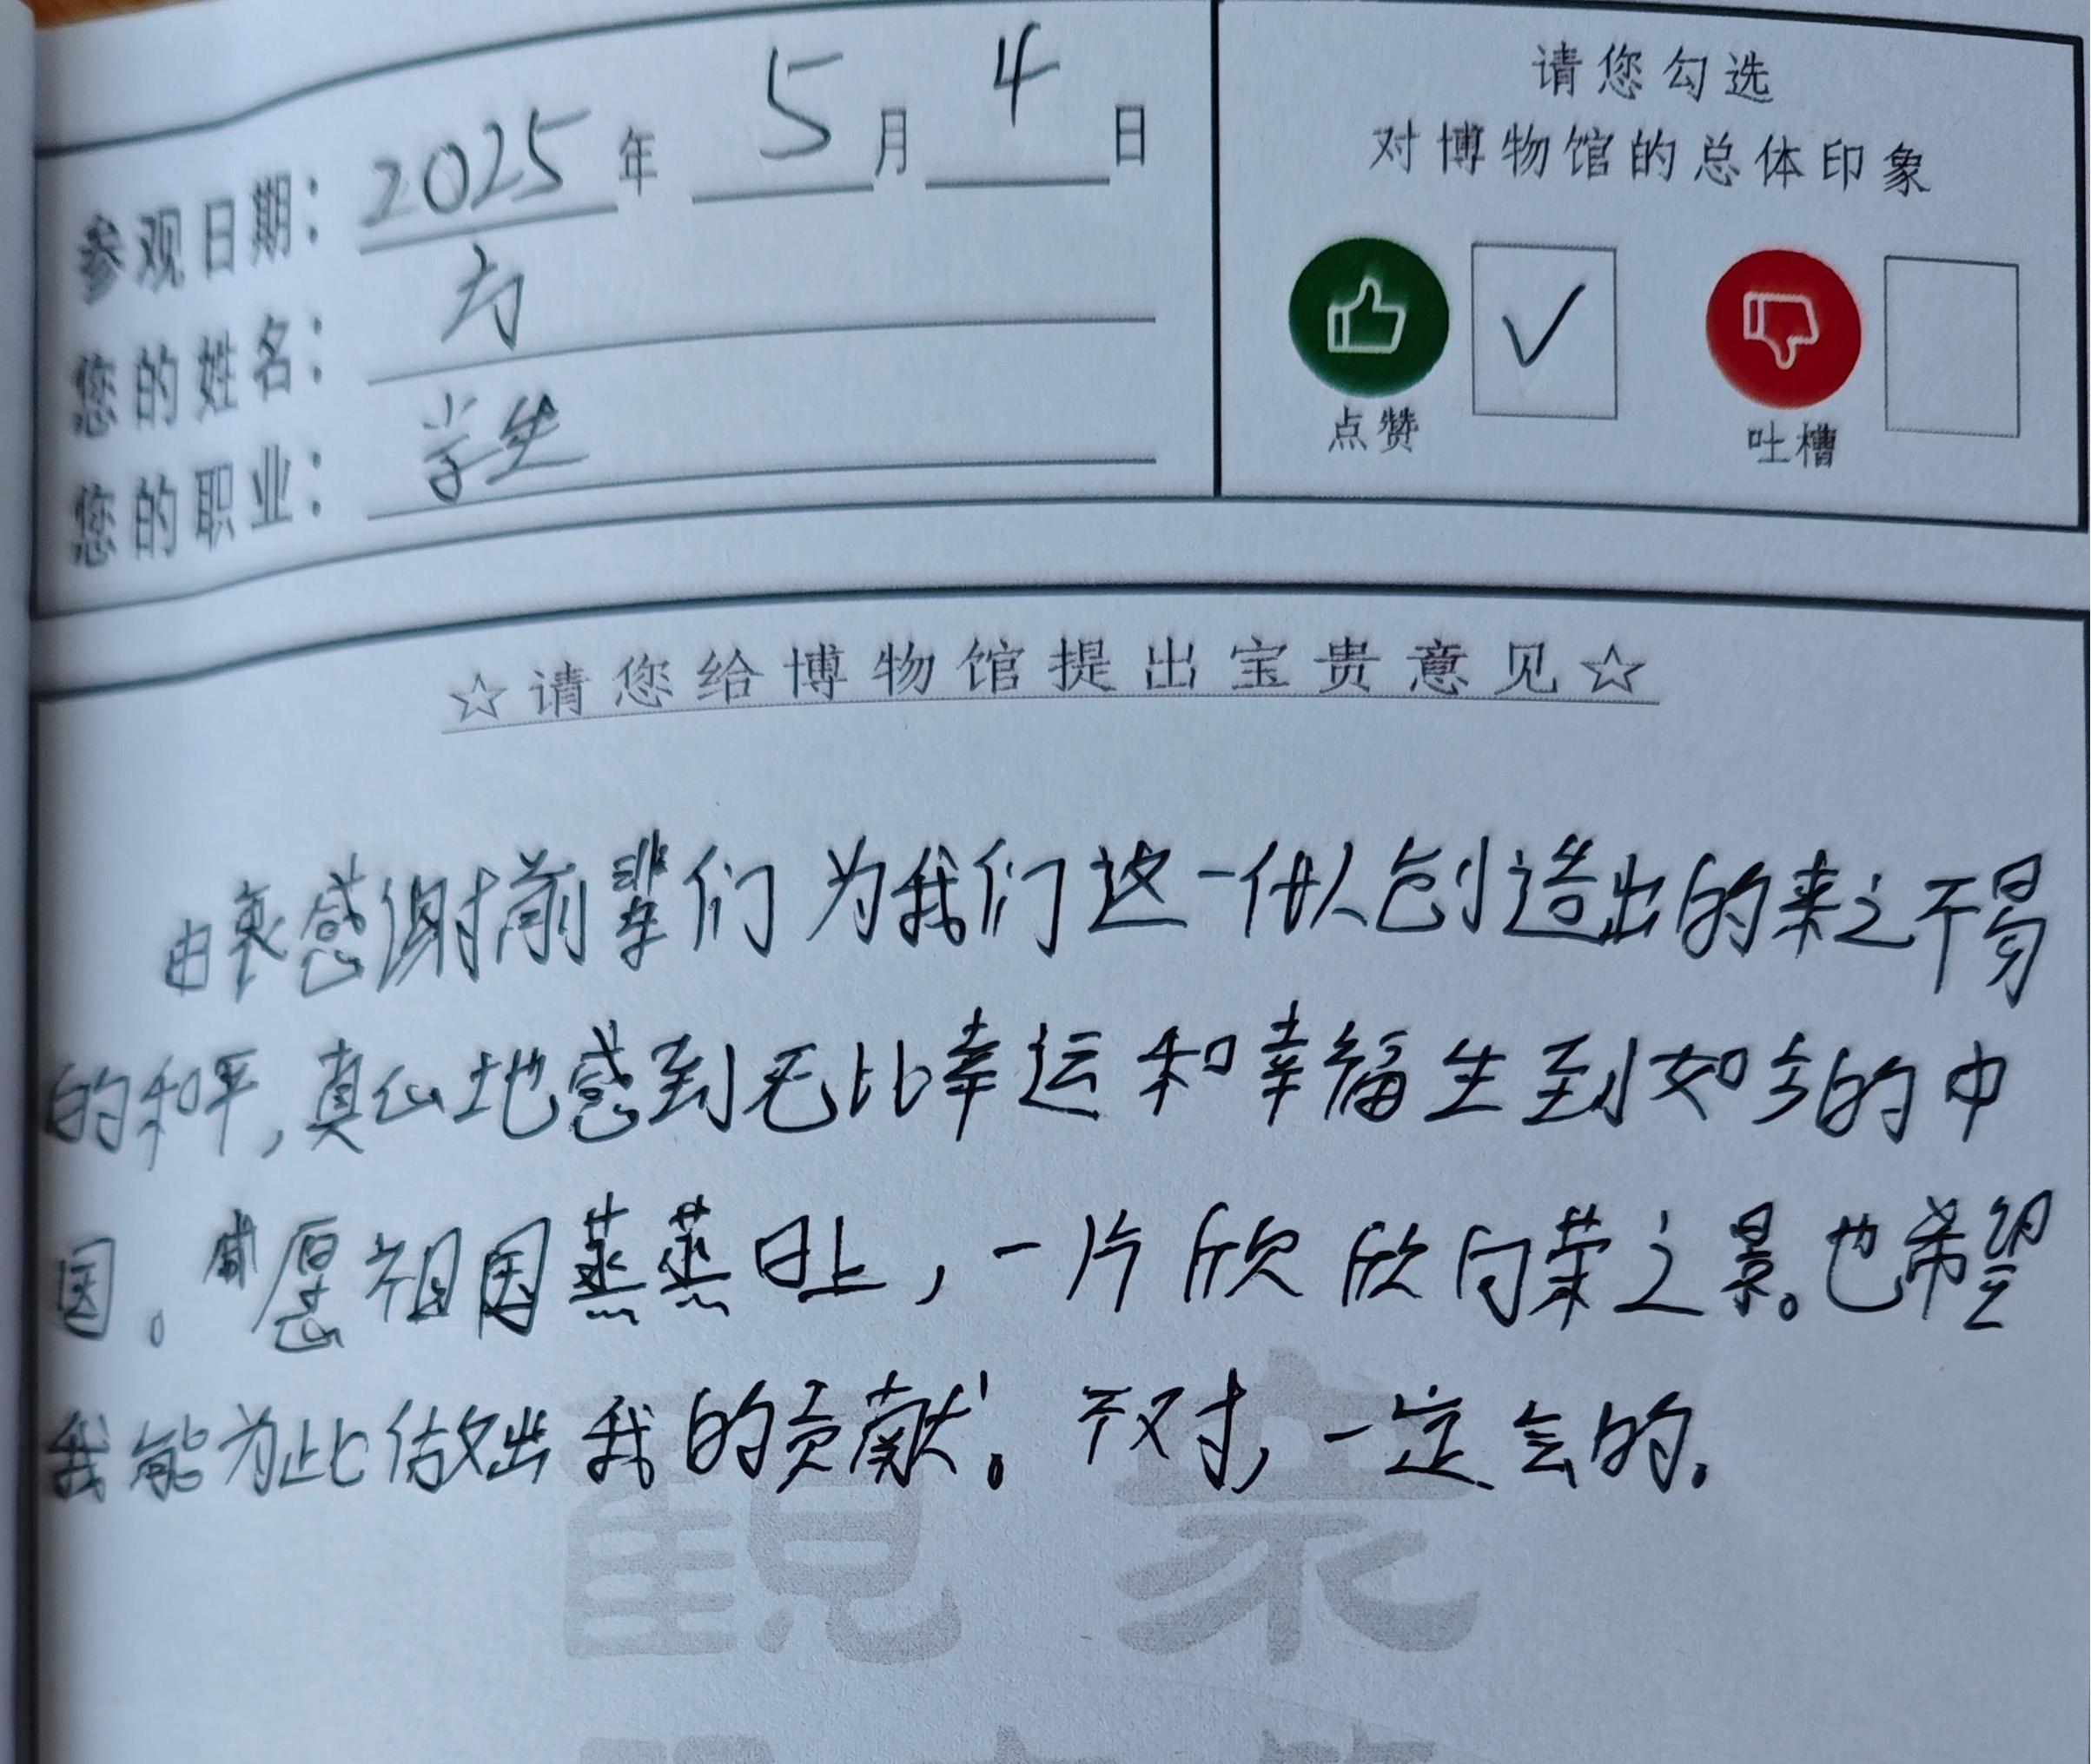 参观日期：2025年 5月 4日
您的姓名：方
您的职业：学生
请您勾选
对博物馆的总体印象
点赞 ✓ 吐槽
☆请您给博物馆提出宝贵意见☆
由衷感谢前辈们为我们这一代人创造出的来之不易
的和平,真心地感到无比幸运和幸福生到如今的中
国。愿祖国蒸蒸日上,一片欣欣向荣之景。也希望
我能为此做出我的贡献。不对,一定会的.
觀衆